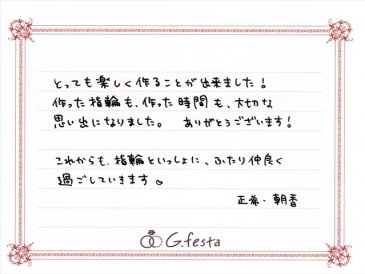 とっても楽しく作ることが出来ました！
作った指輪も、作った時間も、大切な
思い出になりました。 ありがとうございます！
これからも、指輪といっしょに、ふたり仲良く
過ごしていきます。
朝香
G.festa